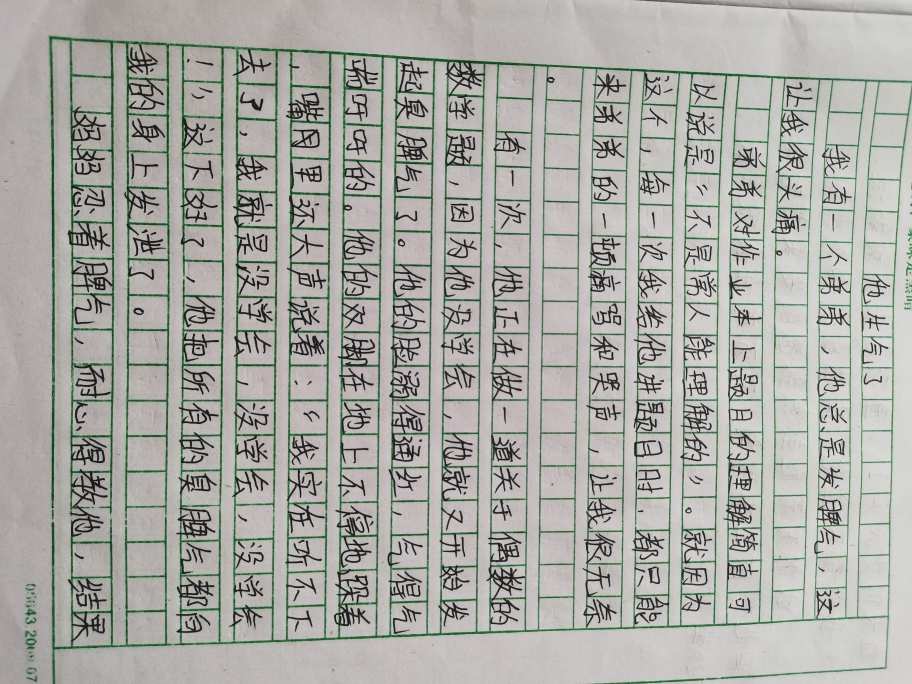 他生气了
我有一个弟弟，他总是发脾气，这
让我很头痛。
弟弟对作业本上题目的理解简直可
以说是“不是常人能理解的”。就因为
这个，每一次我给他讲题目时，都只能
来弟弟的一顿痛骂和哭声，让我很无奈
。
有一次，他正在做一道关于偶数的
数学题，因为他没学会，他就又开始发
起臭脾气了。他的脸溺得通红，气得气
喘吁吁的。他的双脚在地上不停地跺着
，嘴因里还大声说着：“我实在听不下
去了，我就是没学会，没学会，没学会
！”这下好了，他把所有的臭脾气都向
我的身上发泄了。
妈妈忍着脾气，耐心得教他，结果
05643 2009.07